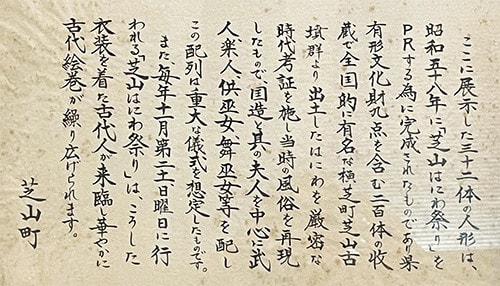 ここに展示した三十二体の人形は、
昭和五十八年に「芝山はにわ祭り」を
PRする為に完成されたものであり県
有形文化財九点を含む二百体の収
蔵で全国的に有名な横芝町芝山古
墳群より出土したはにわを厳密な
時代考証を施し当時の風俗を再現
したもので、国造と其の夫人を中心に武
人、楽人、供巫女、舞巫女等を配し
この配列は重大な儀式を想定したものです。
また、毎年十一月第二日曜日に行
われる「芝山はにわ祭り」は、こうした
衣装を着た古代人が来臨し華やかに
古代絵巻が繰り広げられます。
芝山町